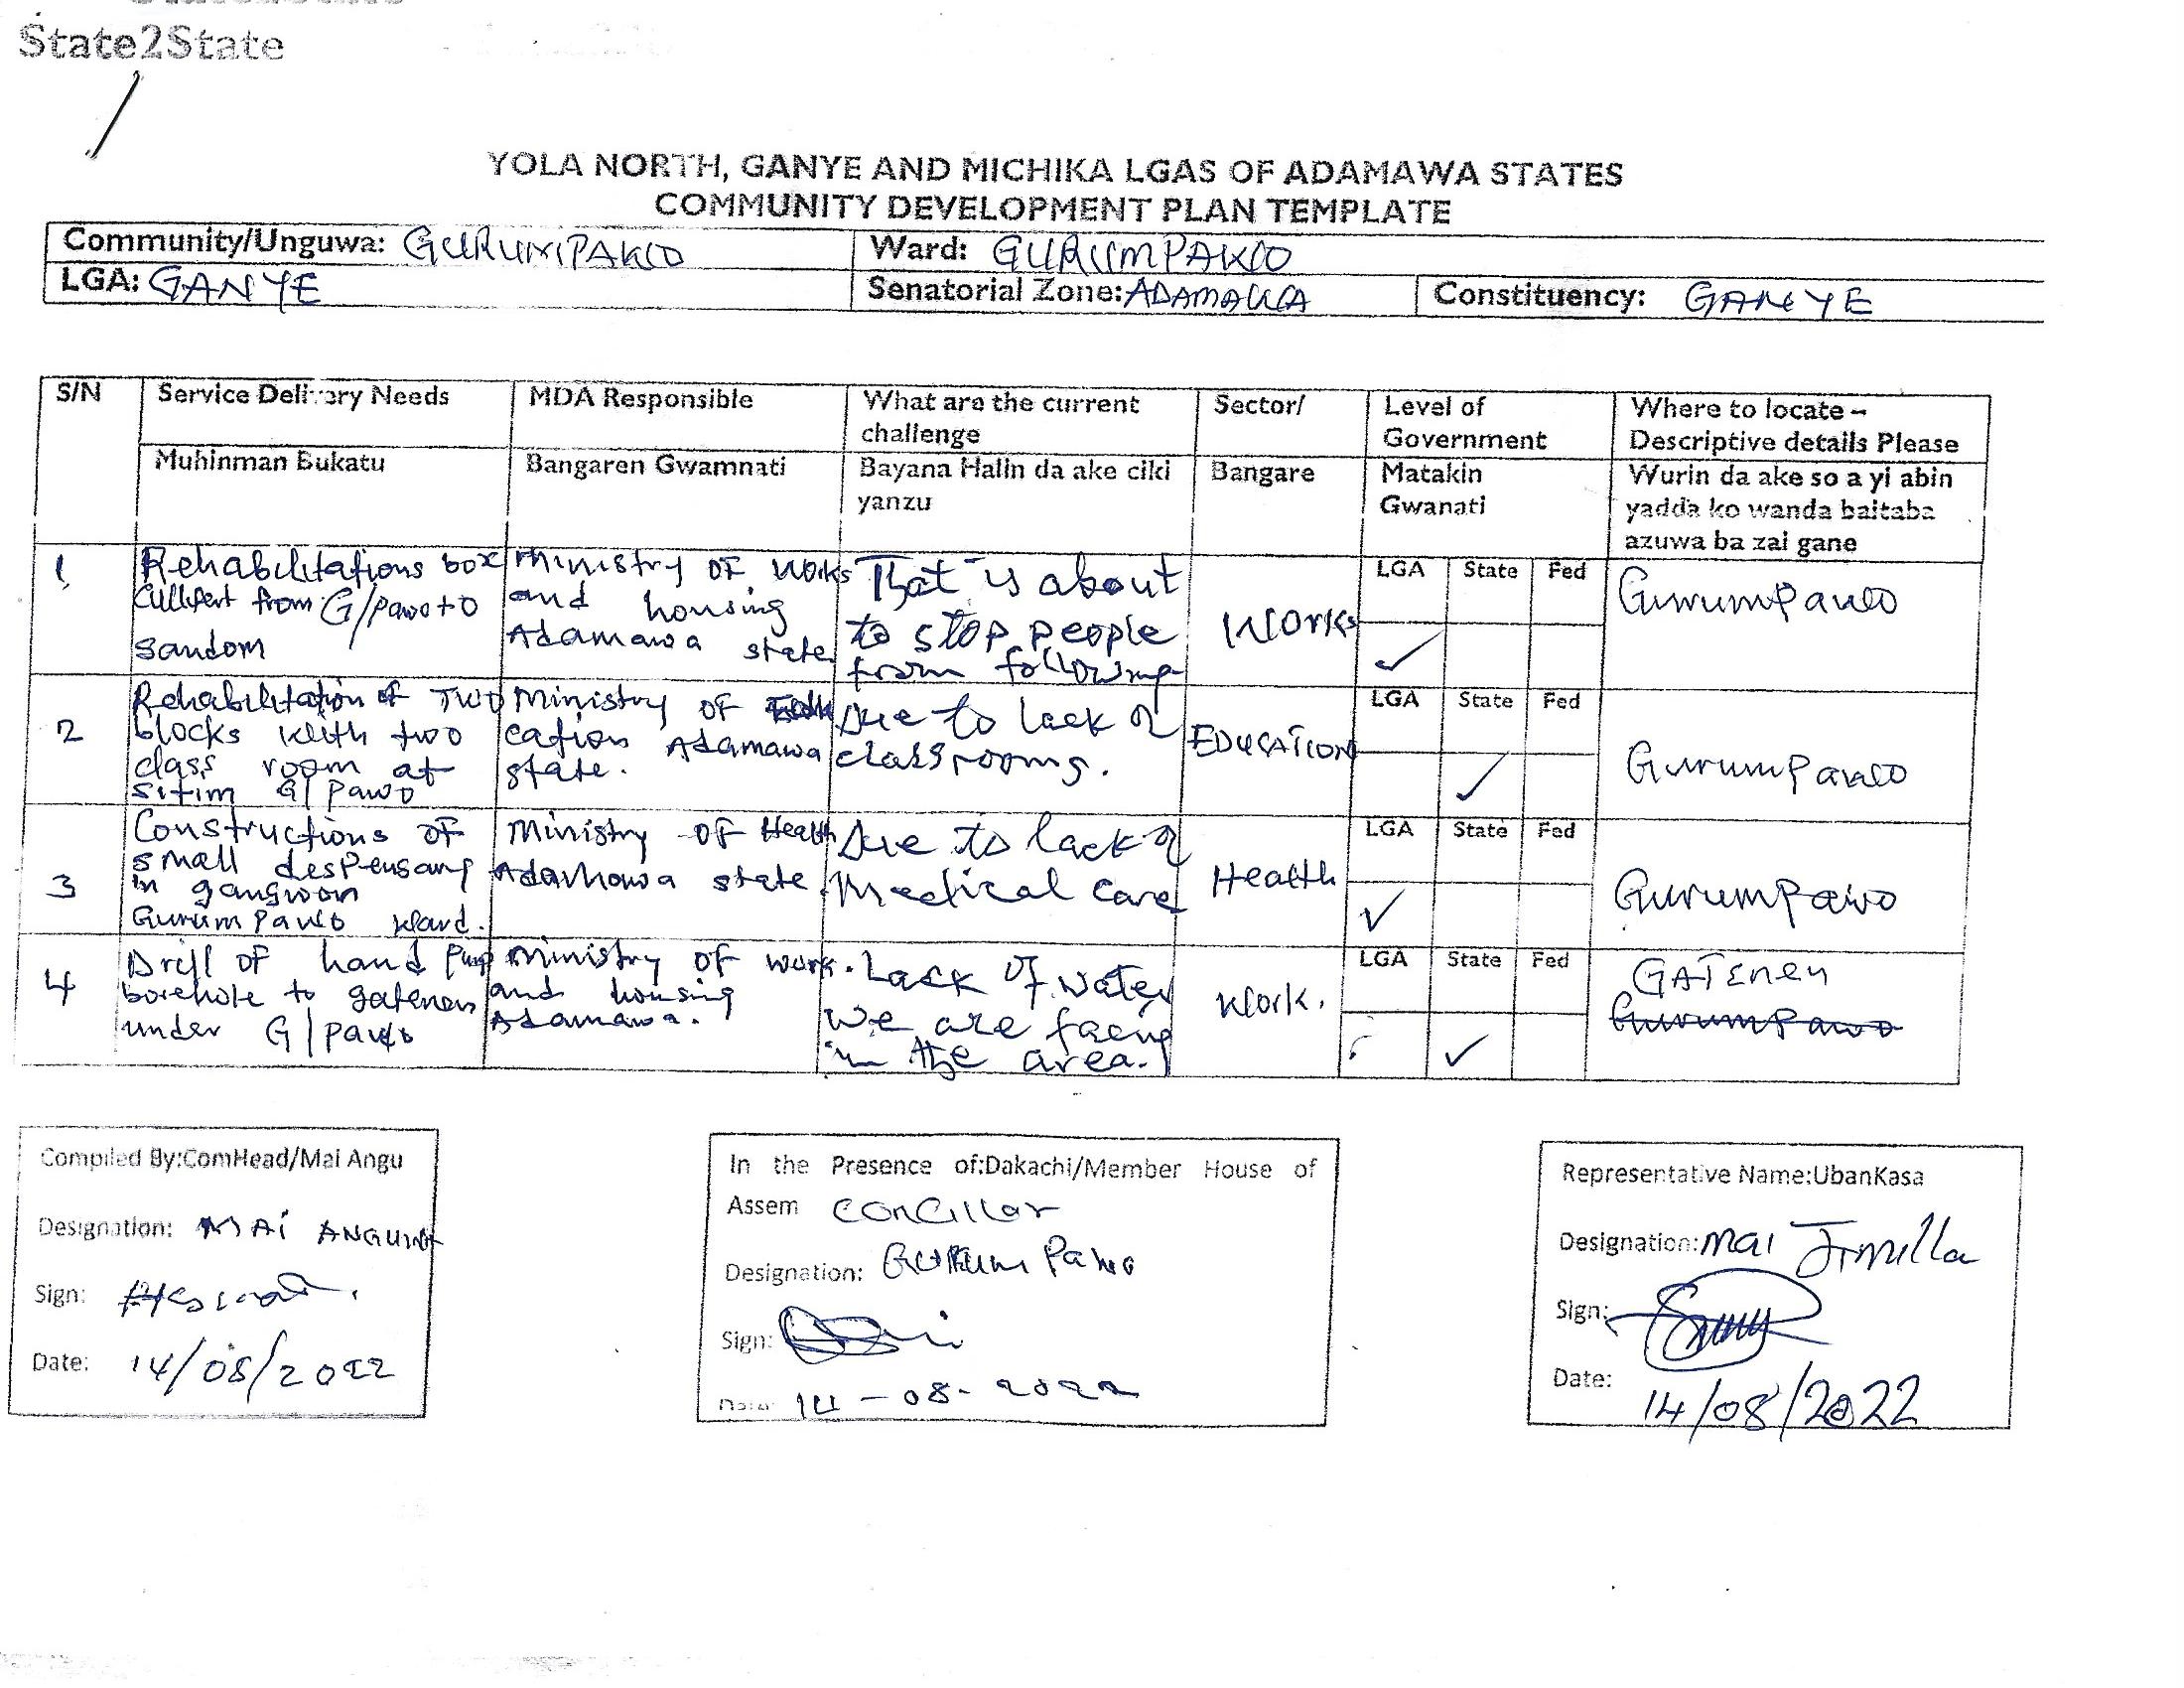 State2State
YOLA NORTH, GANYE AND MICHIKA LGAS OF ADAMAWA STATES
COMMUNITY DEVELOPMENT PLAN TEMPLATE
Community/Unguwa: GURUMPAWO Ward: GURUMPAWO
LGA: GANYE Senatorial Zone: ADAMAWA Constituency: GANYE
S/N Service Delivery Needs MDA Responsible What are the current challenge Sector/ Level of Government Where to locate – Descriptive details Please
Muhinman Bukatu Bangaren Gwamnati Bayana Halin da ake ciki yanzu Bangare Matakin Gwanati Wurin da ake so a yi abin yadda ko wanda baitaba azuwa ba zai gane
1
Rehabilitations box
Cullvert from G/pawo to
sandom
Ministry of works
and housing
Adamawa state
That is about
to stop people
from following
Works
LGA State Fed
✓
Gurumpawo
2
Rehabilitation of TWO
blocks with two
class room at
sitim G/Pawo
Ministry of Edu
cation Adamawa
state.
Due to lack of
classrooms.
EDUCATION
LGA State Fed
✓
Gurumpawo
3
Constructions of
small despensary
in gangwon
Gurumpawo ward.
Ministry of Health
Adamawa state.
Due to lack of
Medical care
Health
LGA State Fed
✓
Gurumpawo
4
Drill of hand Pump
borehole to gateneu
under G/pawo
Ministry of work.
and housing
Adamawa.
Lack of water
we are facing
in the area.
Work.
LGA State Fed
✓
GATENEU
Gurumpawo
Compiled By:ComHead/Mai Angu
Designation: MAI ANGUWA
Sign:
Date: 14/08/2022
In the Presence of:Dakachi/Member House of
Assem Concillor
Designation: GURUM Pawo
Sign:
Date: 14-08-2022
Representative Name:UbanKasa
Designation: Mai Jimilla
Sign:
Date:
14/08/2022